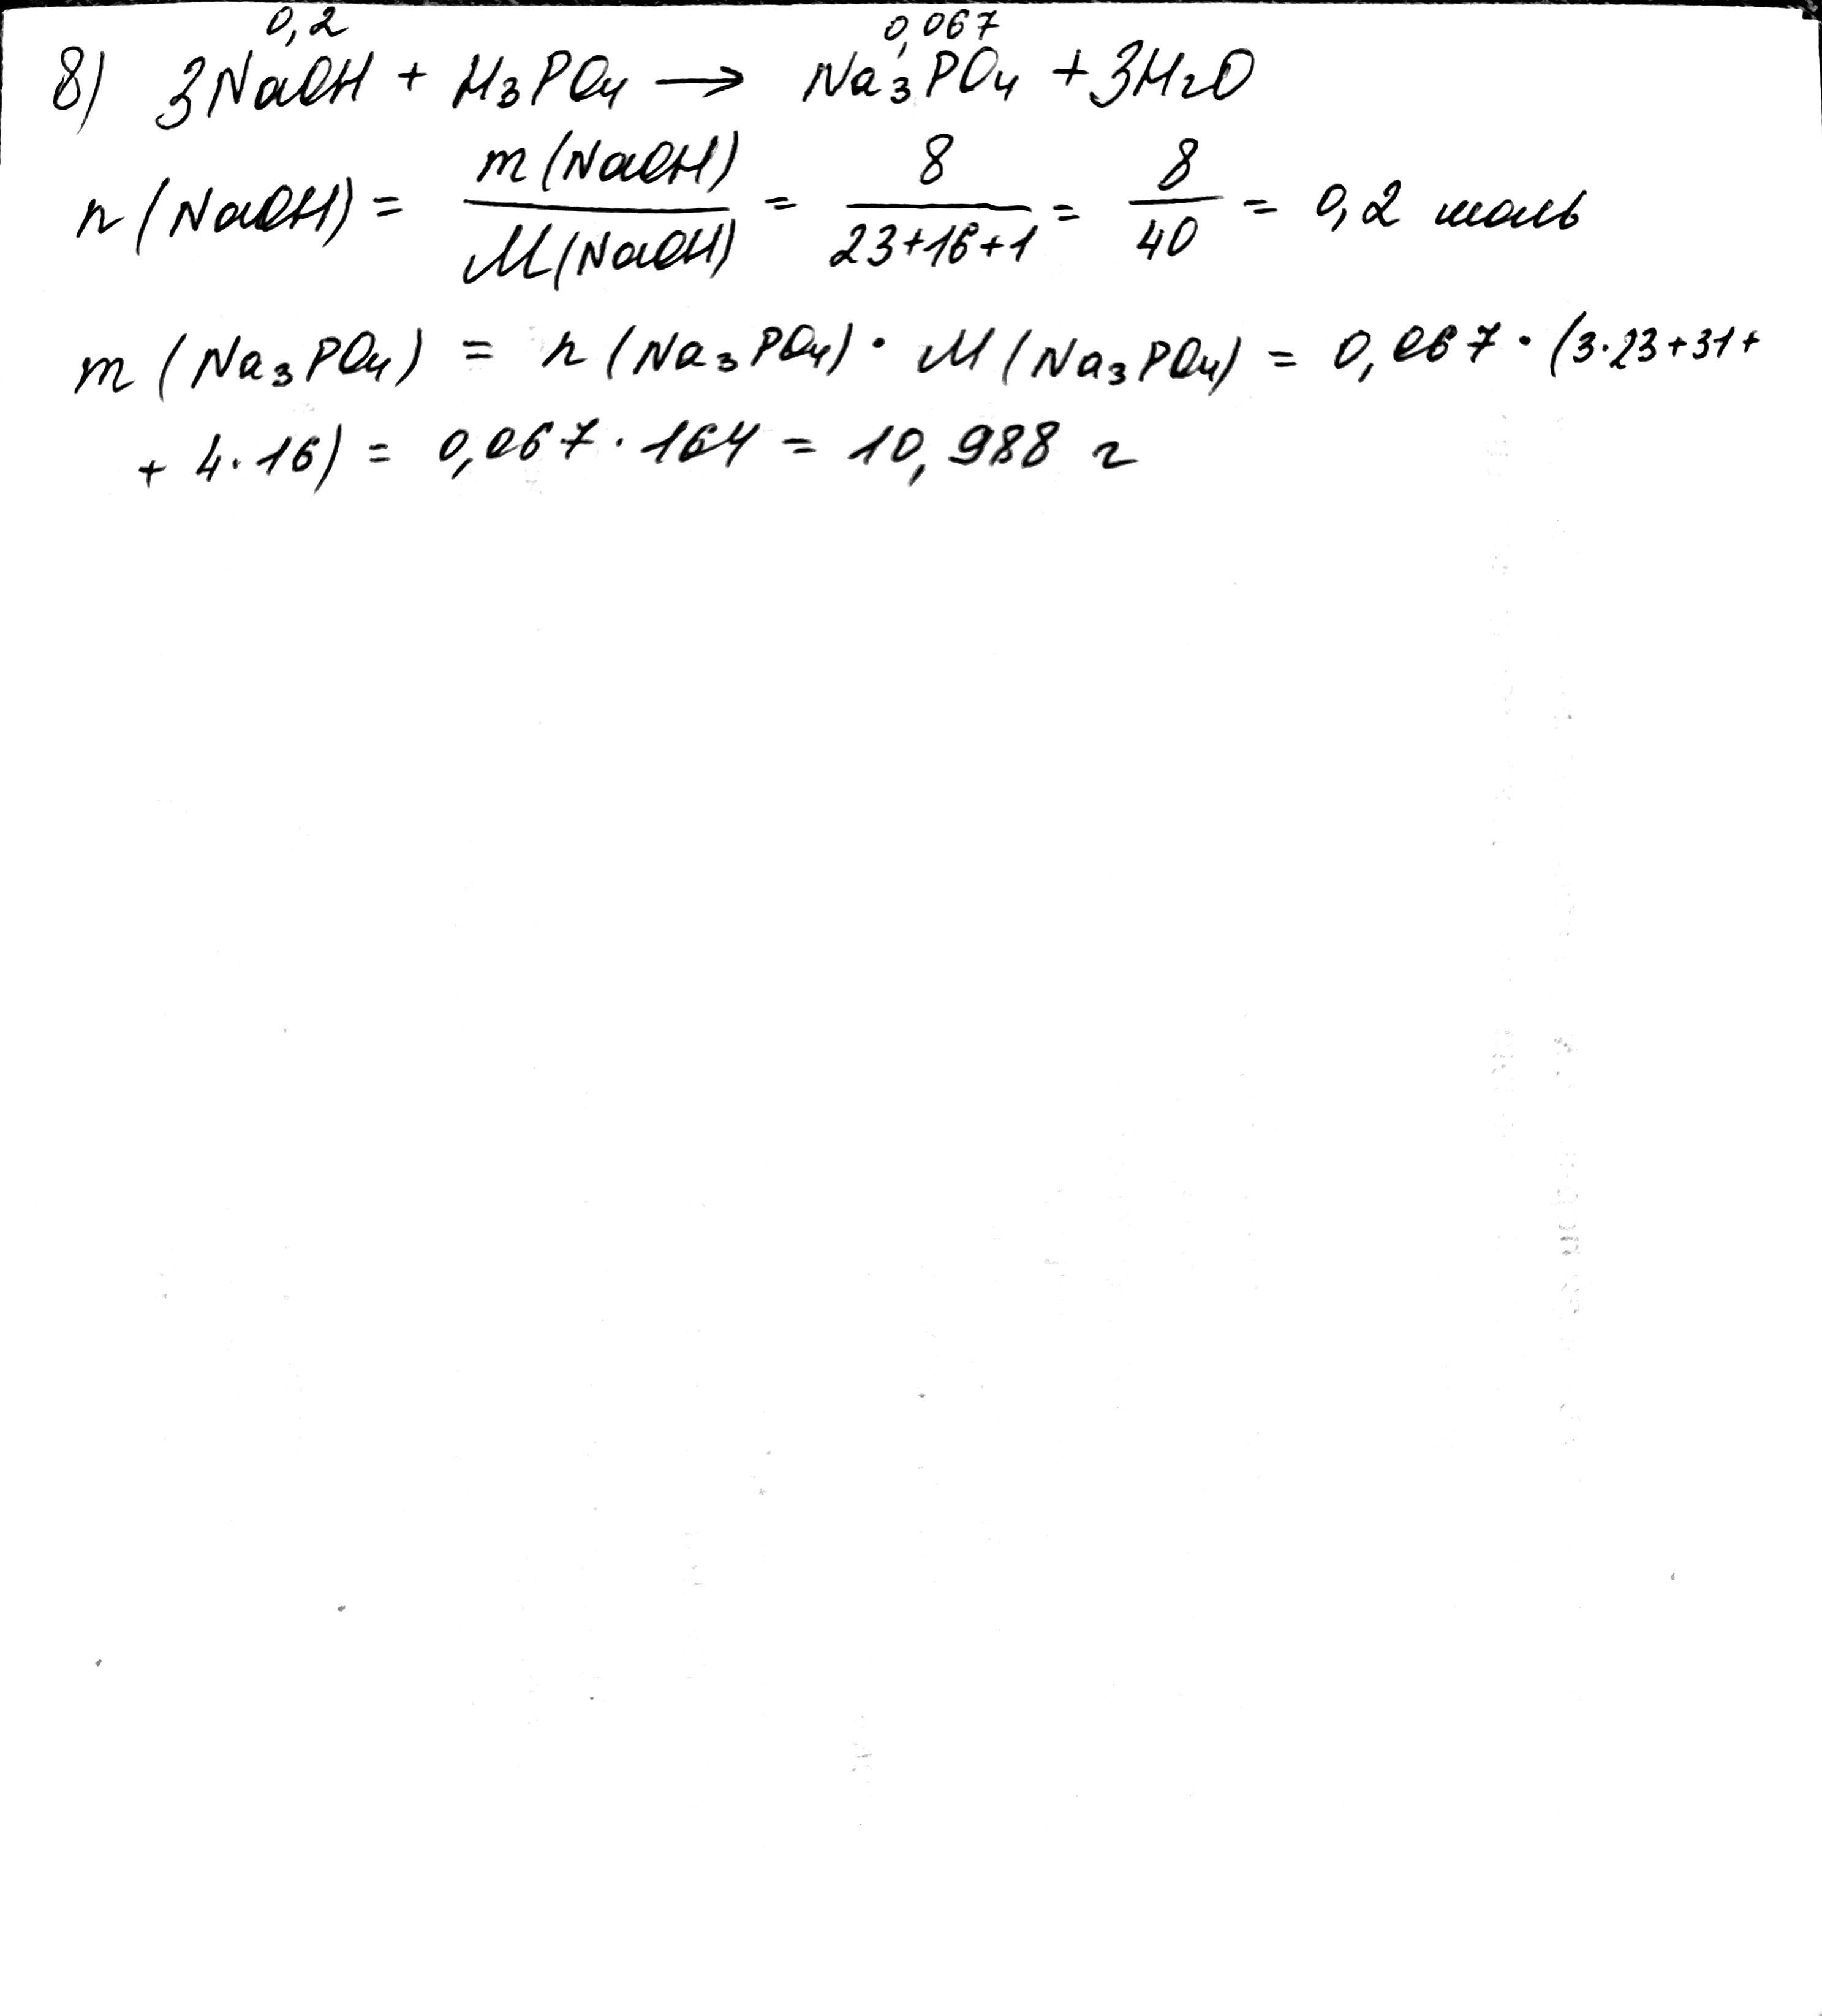 0,2 0,067
8) 3NaOH + H₃PO₄ → Na₃PO₄ + 3H₂O
n(NaOH) = m(NaOH) / M(NaOH) = 8 / 23+16+1 = 8 / 40 = 0,2 моль
m(Na₃PO₄) = n(Na₃PO₄) · M(Na₃PO₄) = 0,067 · (3·23+31+
+ 4·16) = 0,067 · 164 = 10,988 г